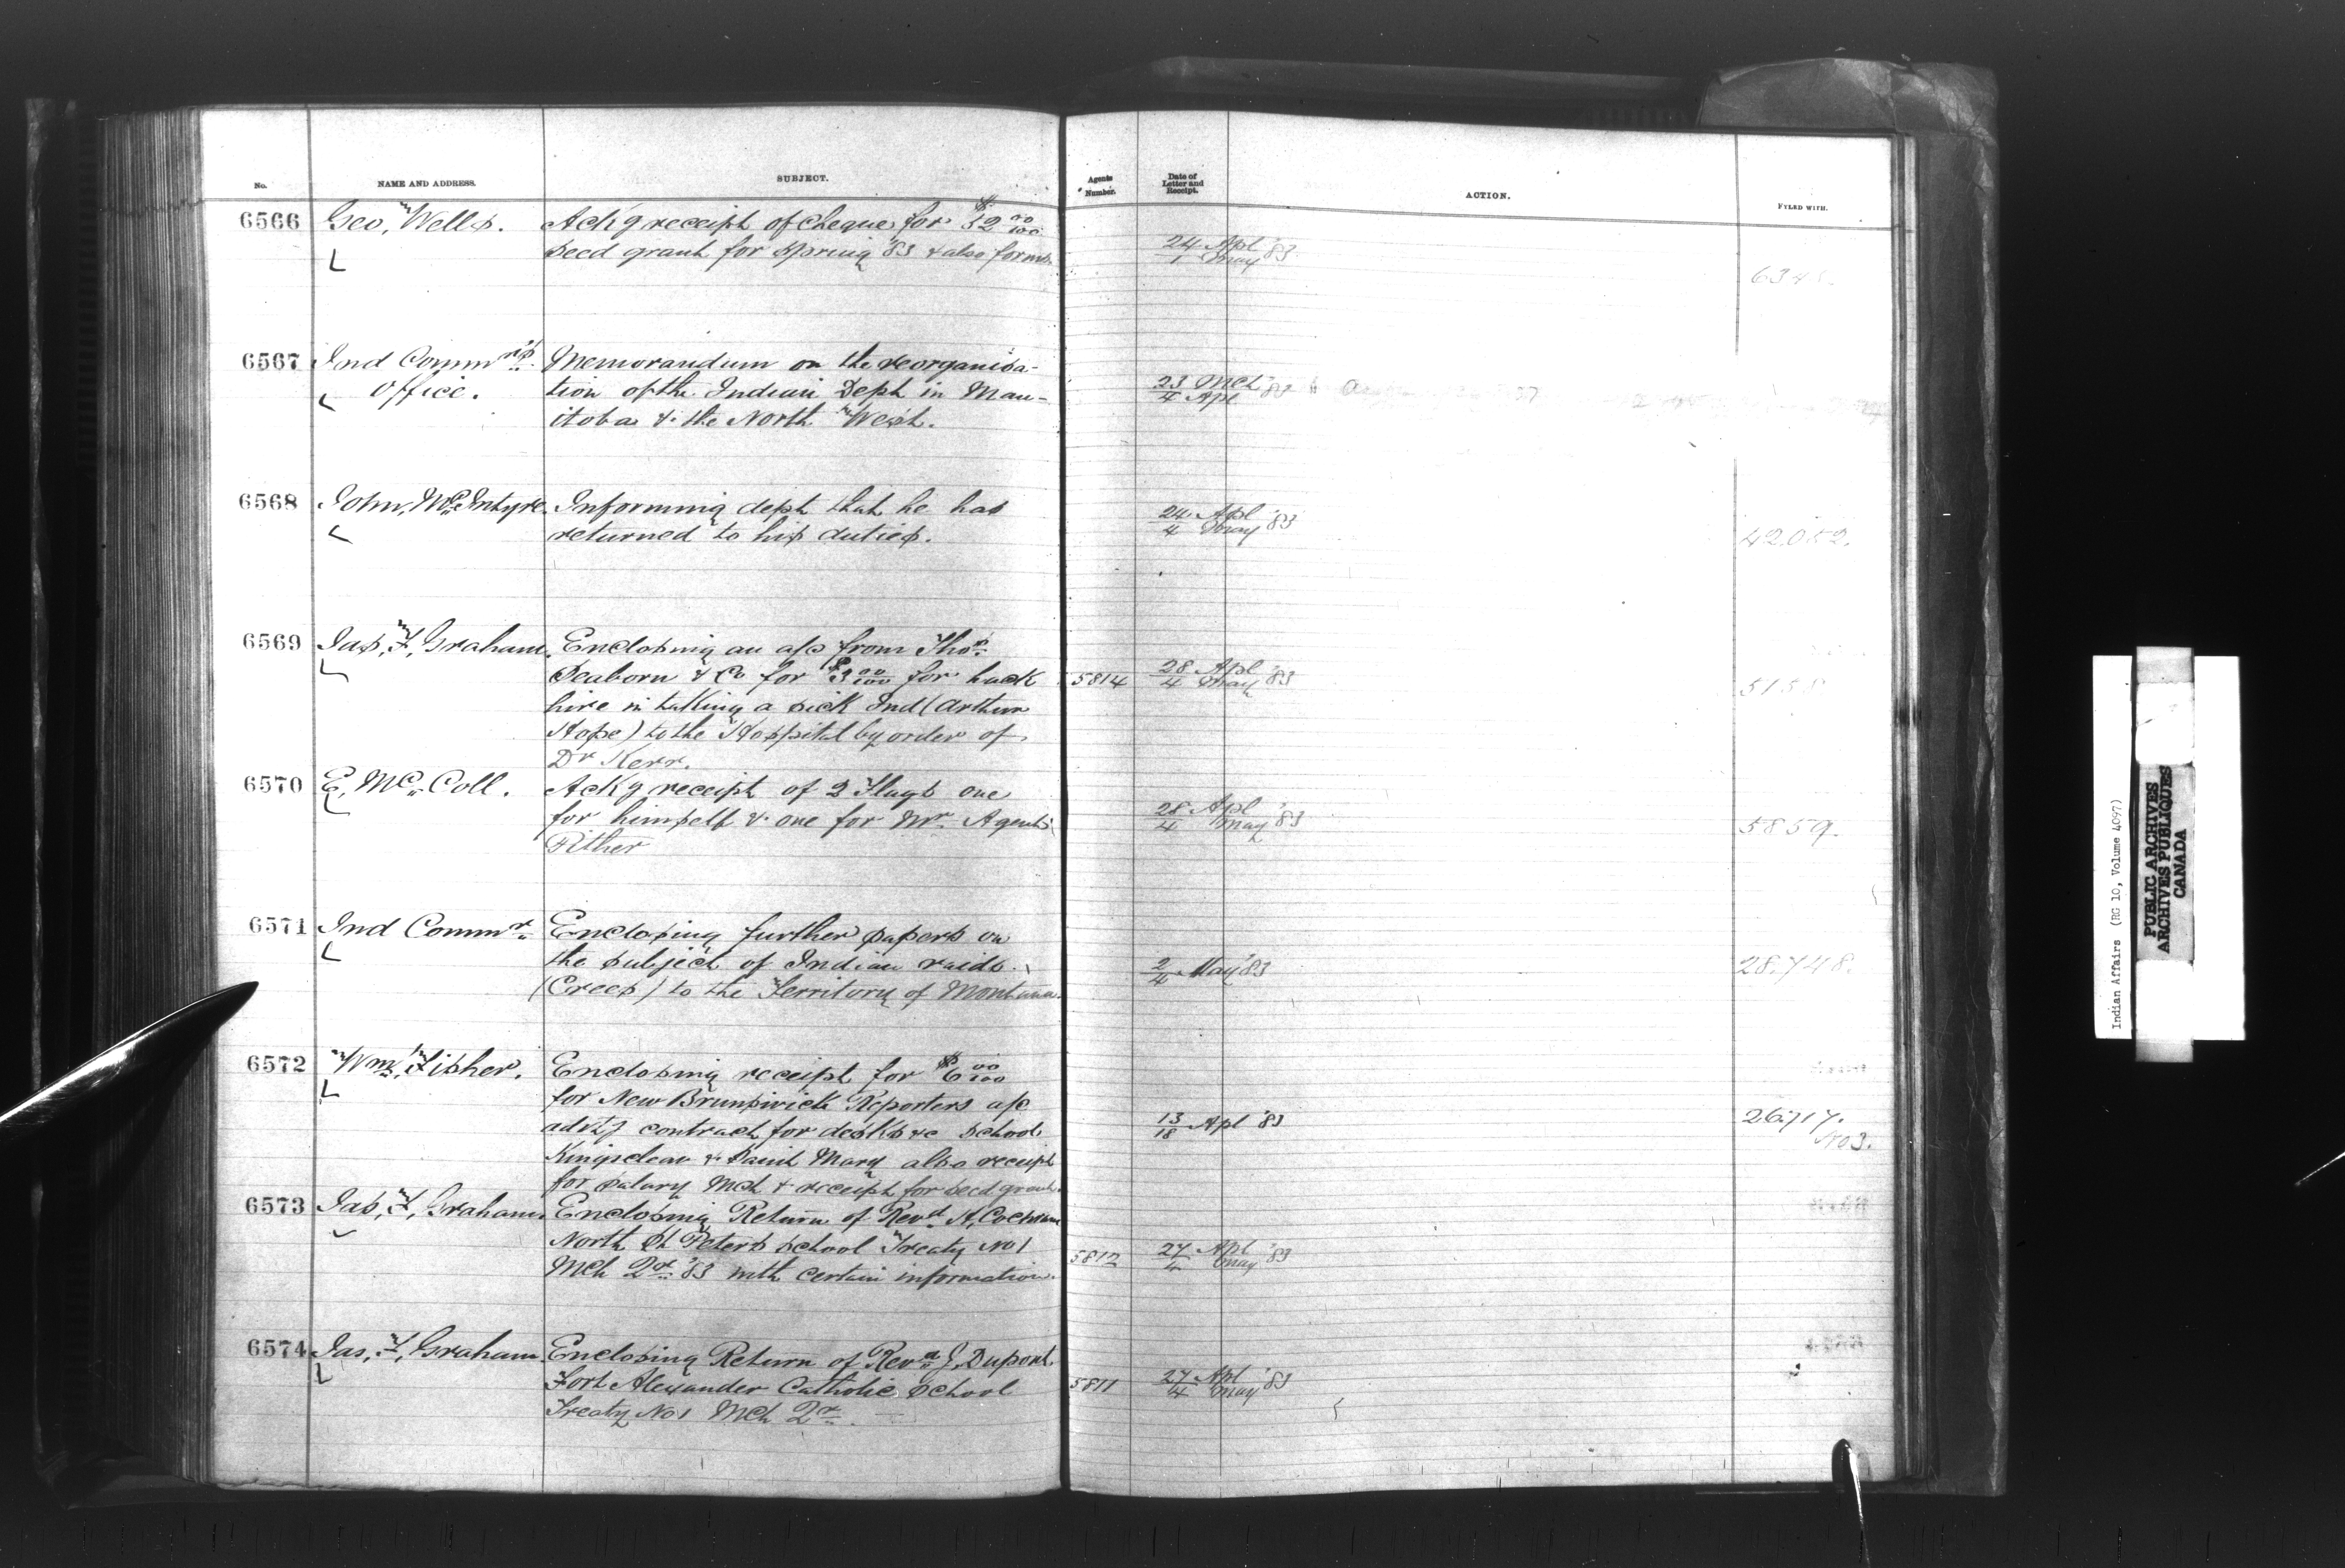 No. NAME AND ADDRESS. SUBJECT. Agents Number. Date of Letter and Receipt. ACTION. FYLED WITH.
6566 Geo, Wells. Ackg receipt of cheque for $52 00/100
seed grant for spring '83 & also forms.
24/1 Apl May '83
634
6567 Ind Commrs Memorandum on the reorganisa-
Office. tion of the Indian Dept in Man-
itoba & the North West.
23/4 Mch Apl
6568 John, McIntyre. Informing dept that he has
returned to his duties.
24/4 Apl May '83
42.052.
6569 Jas, F, Graham. Enclosing an a/c from Thos
Seaborn & Co for $3 00/100 for hack
hire in taking a sick Ind (Arthur
Hope) to the Hospital by order of
Dr Kerr.
5814 28/4 Apl May '83
515
6570 E, McColl. Ackg receipt of 2 Flags one
for himself & one for Mr Agent
Pither
28/4 Apl May '83
5859.
6571 Ind Commr Enclosing further papers on
the subject of Indian raids
(Crees) to the Territory of Montana.
2/4 May '83
28.748.
6572 Wm, Fisher. Enclosing receipt for $6 00/100
for New Brunswick Reporters a/c
advtg contract for desks &c school
Kingsclear & Saint Mary also receipt
for salary Mch & receipt for seed grant.
13/18 Apl '83
26.717.
No 3.
6573 Jas, F, Graham. Enclosing Return of Revd H, Cochrane
North St Peters school Treaty No 1
Mch Qr '83 with certain information.
5812 27/4 Apl May '83
6574 Jas, F, Graham Enclosing Return of Revd J, Dupont.
Fort Alexander Catholic School
Treaty No 1 Mch Qr.
5811 27/4 Apl May '83
Indian Affairs (RG 10, Volume 4097)
PUBLIC ARCHIVES
ARCHIVES PUBLIQUES
CANADA